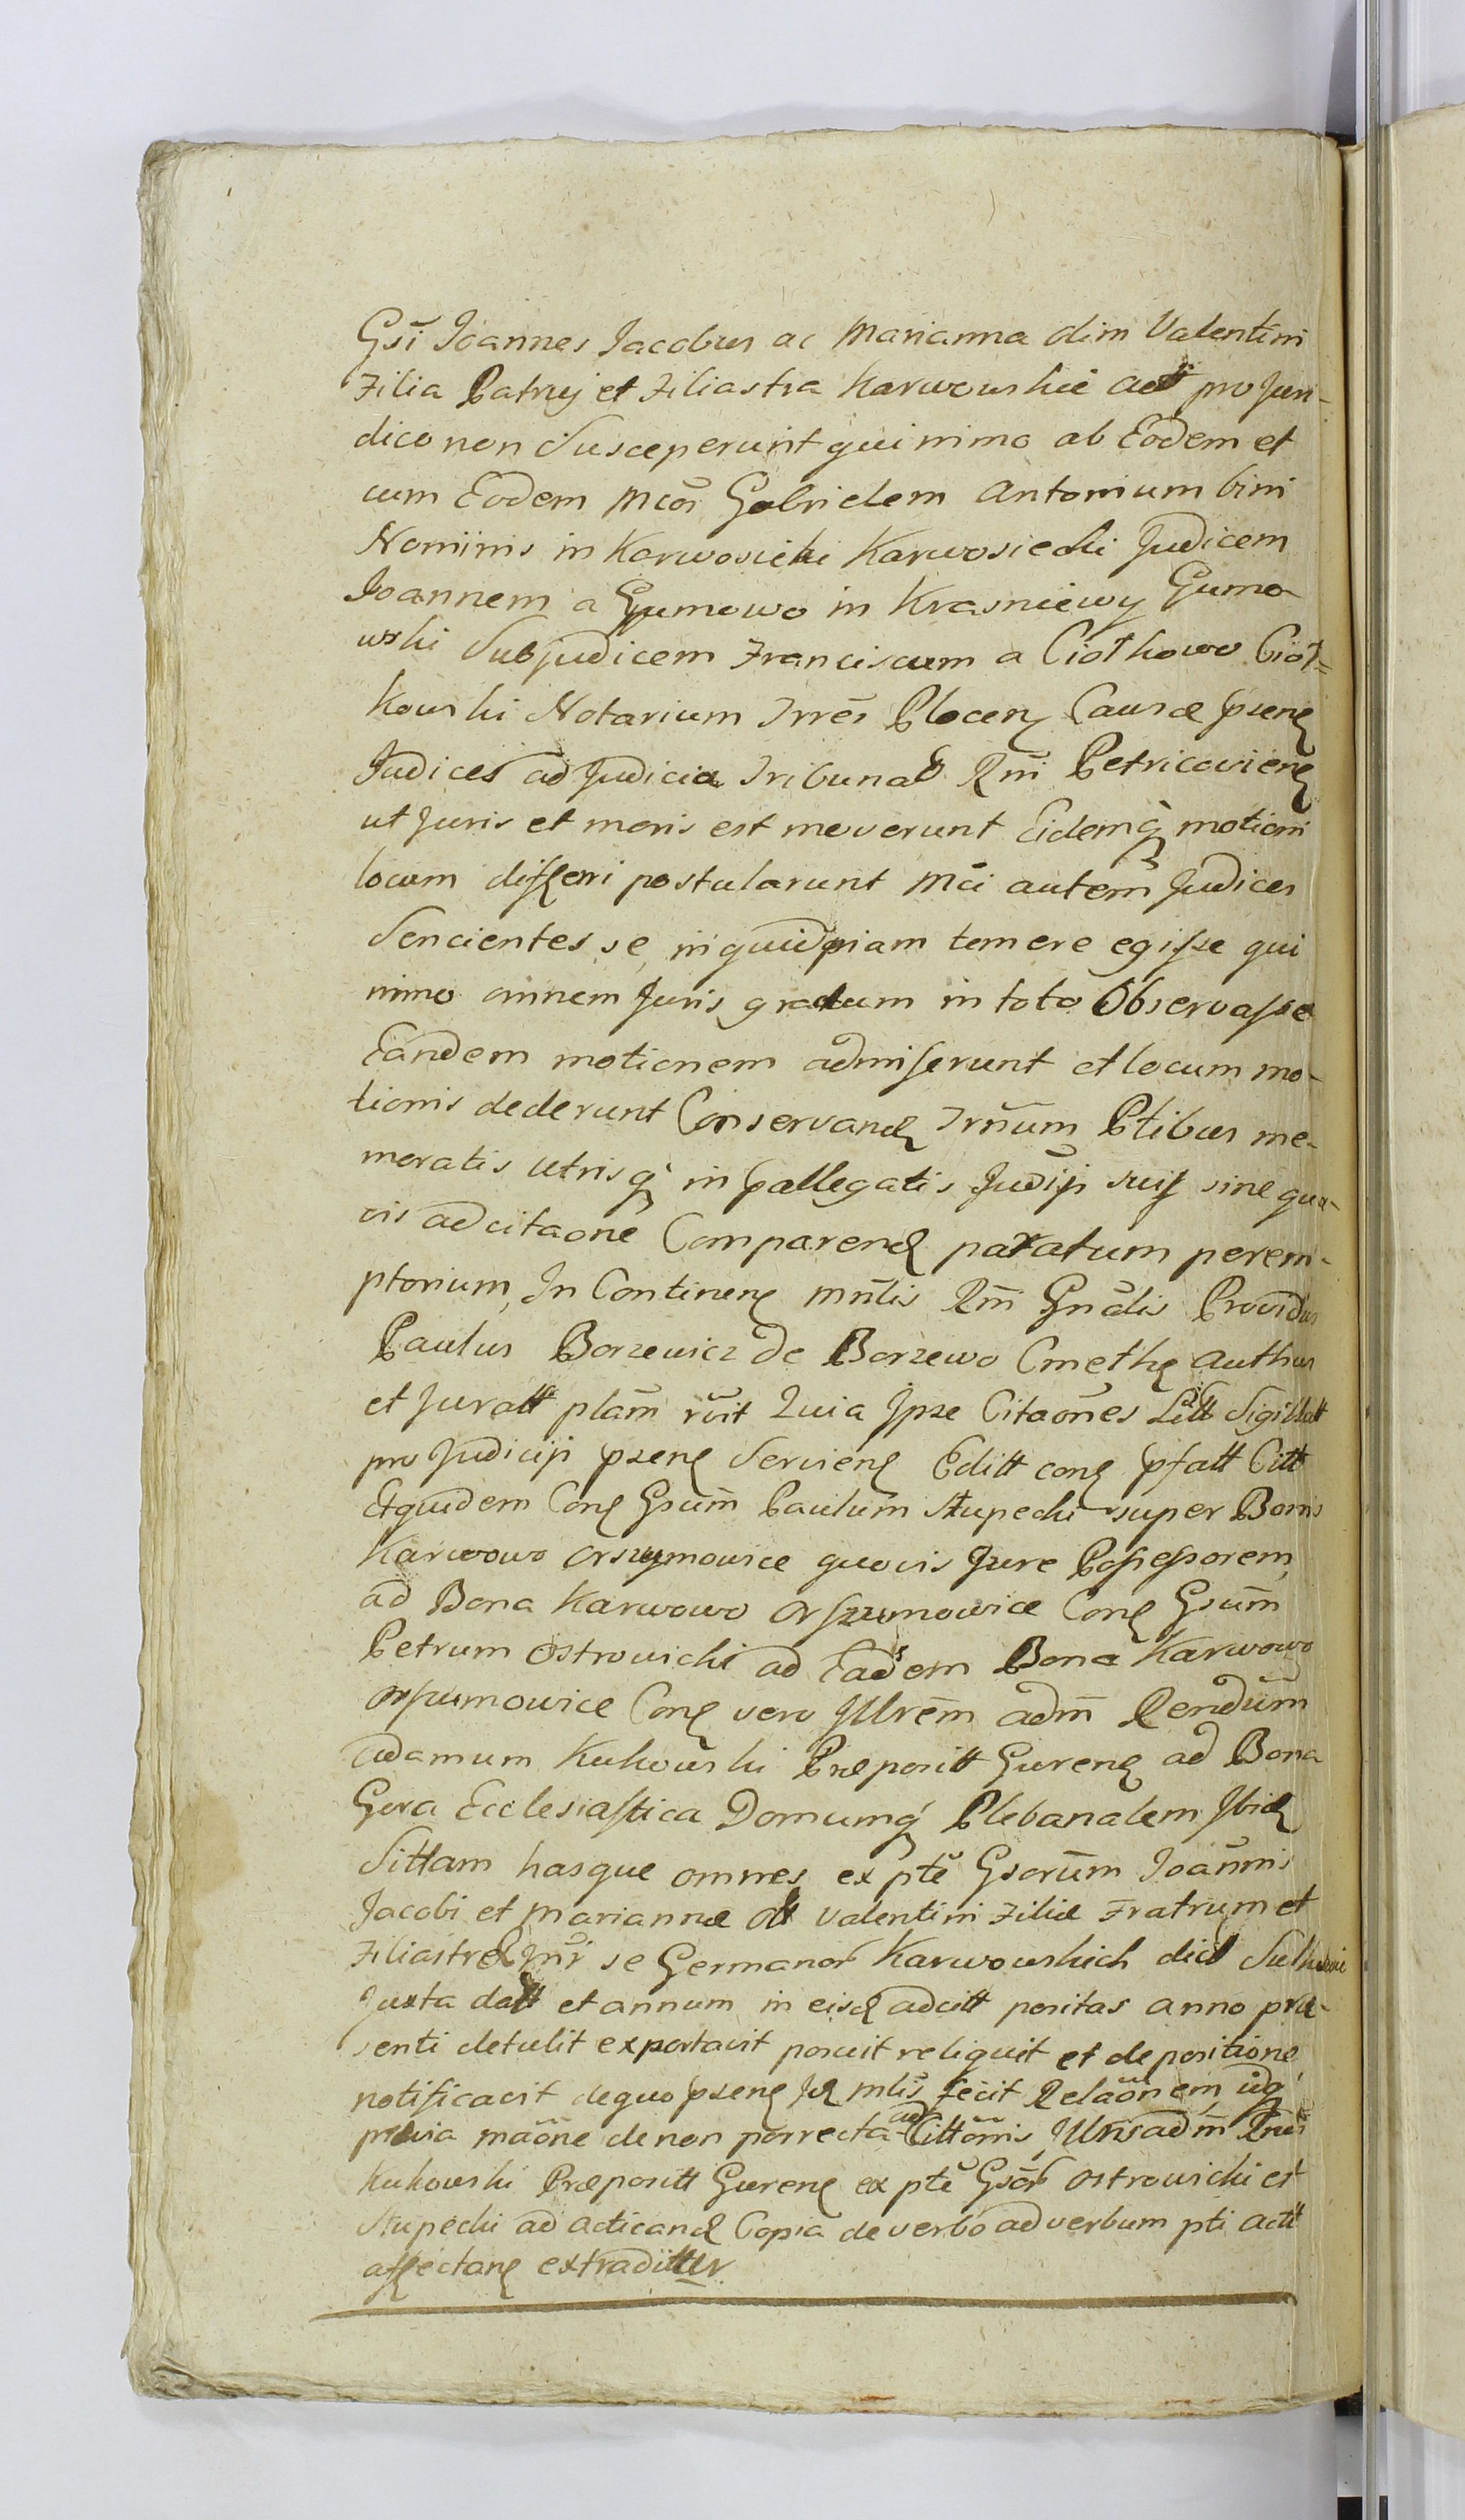 Gsi Joannes Jacobus ac Marianna olim Valentini
Filia Patruj et Filiastra Karwowskie act pro Juri-
dico non Susceperunt quinimo ab Eodem et
cum Eodem Mcos Gabrielem Antonium bini
Nominis in Karwosieki Karwosiecki Judicem
Joannem a Gumowo in Krasniewy Gumo-
wski Subjudicem Franciscum a Ciothowo Ciot=
kowski Notarium Trres Plocen Causæ psens
Judices ad Judicia Tribunal Rni Petricoviens
ut Juris et moris est moverunt Eidemq motioni
locum differi postularunt Mci autem Judices
Sencientes se in quidpiam temere egisse qui
nimo omnem Juris gradum in toto Observasse
Eandem motionem admiserunt et locum mo-
tionis dederunt Conservand Trnum Ptibus me-
moratis utrisq in pallegatis Judijs suis sine qua-
vis adcitaone Comparend paratum perem-
ptorium, In Continen Mnlis Rni Gnalis Providus
Paulus Borzewicz de Borzewo Cmetho Authus
et Juratt plam rvit Quia Ipse Citaones Litt Sigillatt
pro Judicijs psens Serviens Editt cons pfatt Citt
Etquidem Cons Gsum Paulum Stupecki super Bonis
Karwowo Orszymowice quovis Jure Possessorem
ad Bona Karwowo Orszumowice Cons Gsum
Petrum Ostrowicki ad Eadem Bona Karwowo
Orszumowice Cons vero Illrem adm Rendum
Adamum Kukowski Præposit Gurens ad Bona
Gora Ecclesiastica Domumq Plebanalem Ibid
Sittam hasque omnes ex pte Gsorum Joannis
Jacobi et Mariannæ olt Valentini Filiæ Fratrum et
Filiastræ Intr se Germanor Karwowskich dict
Juxta datt et annum in eisd adcitt positas anno præ-
senti detulit exportavit posuit reliquit et depositione
notificavit dequo psens Jd mlis fecit Relaonem idq
prævia maone de non porrecta ad Cittonis Illris adm Rndi
Kukowski Præposit Gurens ex pte Gsor Ostrowicki et
Stupecki ad acticand Copia de verbo ad verbum pti actt
affectans extraditter